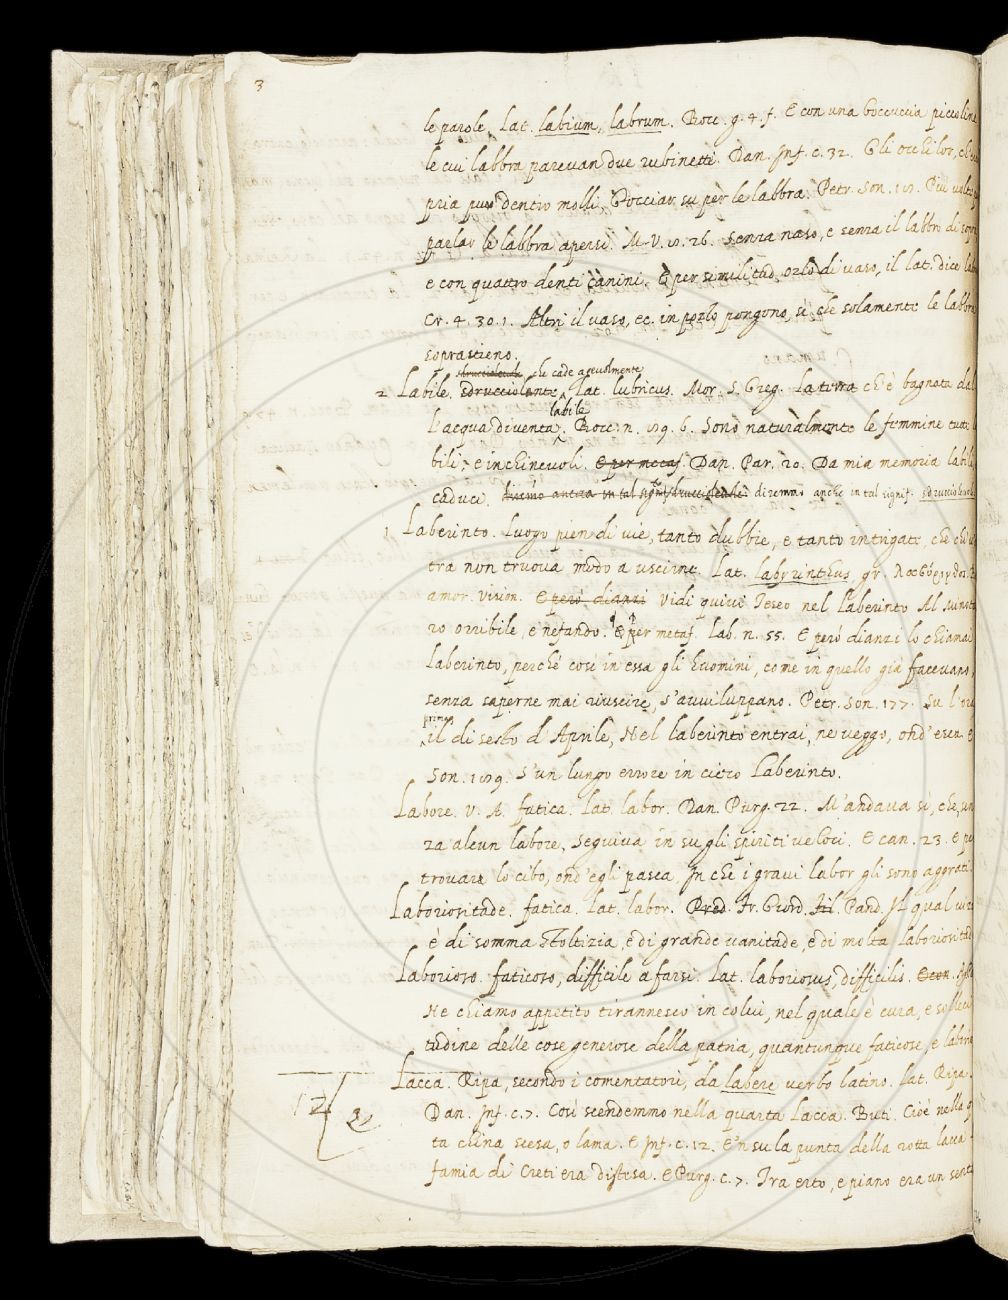 3
le parole. Lat. labium, labrum. Bocc. g. 4. f. E con una boccuccia piccolina
le cui labbra parevan due rubinetti. Dan. Inf. c. 32. Gli occhi lor, ch'
pria pur dentro molli, Gocciar su per le labbra. Petr. Son. Più volte
parlar le labbra apersi. M. V. 26. Senza naso, e senza il labbro di sopra
e con quattro denti canini. E per similitud. orlo di vaso, il lat. dice
Cr. 4. 30. 1. Altri il vaso, ec. in porlo pongono, sì che solamente le labbra
soprastieno.
sdrucciolente che cade agevolmente
2 Labile. sdrucciolante, Lat. lubricus. Mor. S. Greg. La terra ch'è bagnata dal
labile
l'acqua diventa. Bocc. n. 6. Sono naturalmente le femmine tutte
bili, e inchinevoli. E per metaf. Dan. Par. 20. Da mia memoria labile
caduci. diremo anche in tal signif. sdrucciolente
1 Laberinto. Luogo pien di vie, tanto dubbie, e tanto intrigate, che chi
tra non truova modo a uscirne. Lat. labyrinthus, gr.
amor. vision. E però dianzi Vidi quivi Teseo nel Laberinto Al
ro orribile, e nefando. E per metaf. Lab. n. 55. E però dianzi lo chiamai
Laberinto, perché così in essa gli huomini, come in quello già facevano,
senza saperne mai riuscire, s'avviluppano. Petr. Son. 177. Su l'ora
prima
il dì sesto d'Aprile, Nel laberinto entrai, ne veggo, ond'esca. E
Son. S'un lungo errore in cieco Laberinto.
Labore. V. A. fatica. Lat. labor. Dan. Purg. 22. M'andava sì, che, sen
za alcun labore, Seguiva in su gli spiriti veloci. E can. 23. E per
trovare lo cibo, ond'egli pasca, In che i gravi labor gli sono aggrati
Laboriositade. fatica. Lat. labor. Pred. Fr. Giord. Pand. Il qual
è di somma stoltizia, e di grande vanitade, e di molta laboriositade
Laborioso. faticoso, difficile a farsi. Lat. laboriosus, difficilis.
Ne chiamo appetito tirannesco in colui, nel quale è cura, e solleci
tudine delle cose generose della patria, quantunque faticose, e
Lacca. Ripa, secondo i comentatori, da labere verbo latino. Lat. Ripa.
Dan. Inf. c. 7. Così scendemmo nella quarta Lacca. Buti. Cioè nella
ta china scesa, o lama. E Inf. c. 12. E'n su la punta della rotta lacca
famia di Creti era distesa. E Purg. c. 7. Tra erto, e piano era un